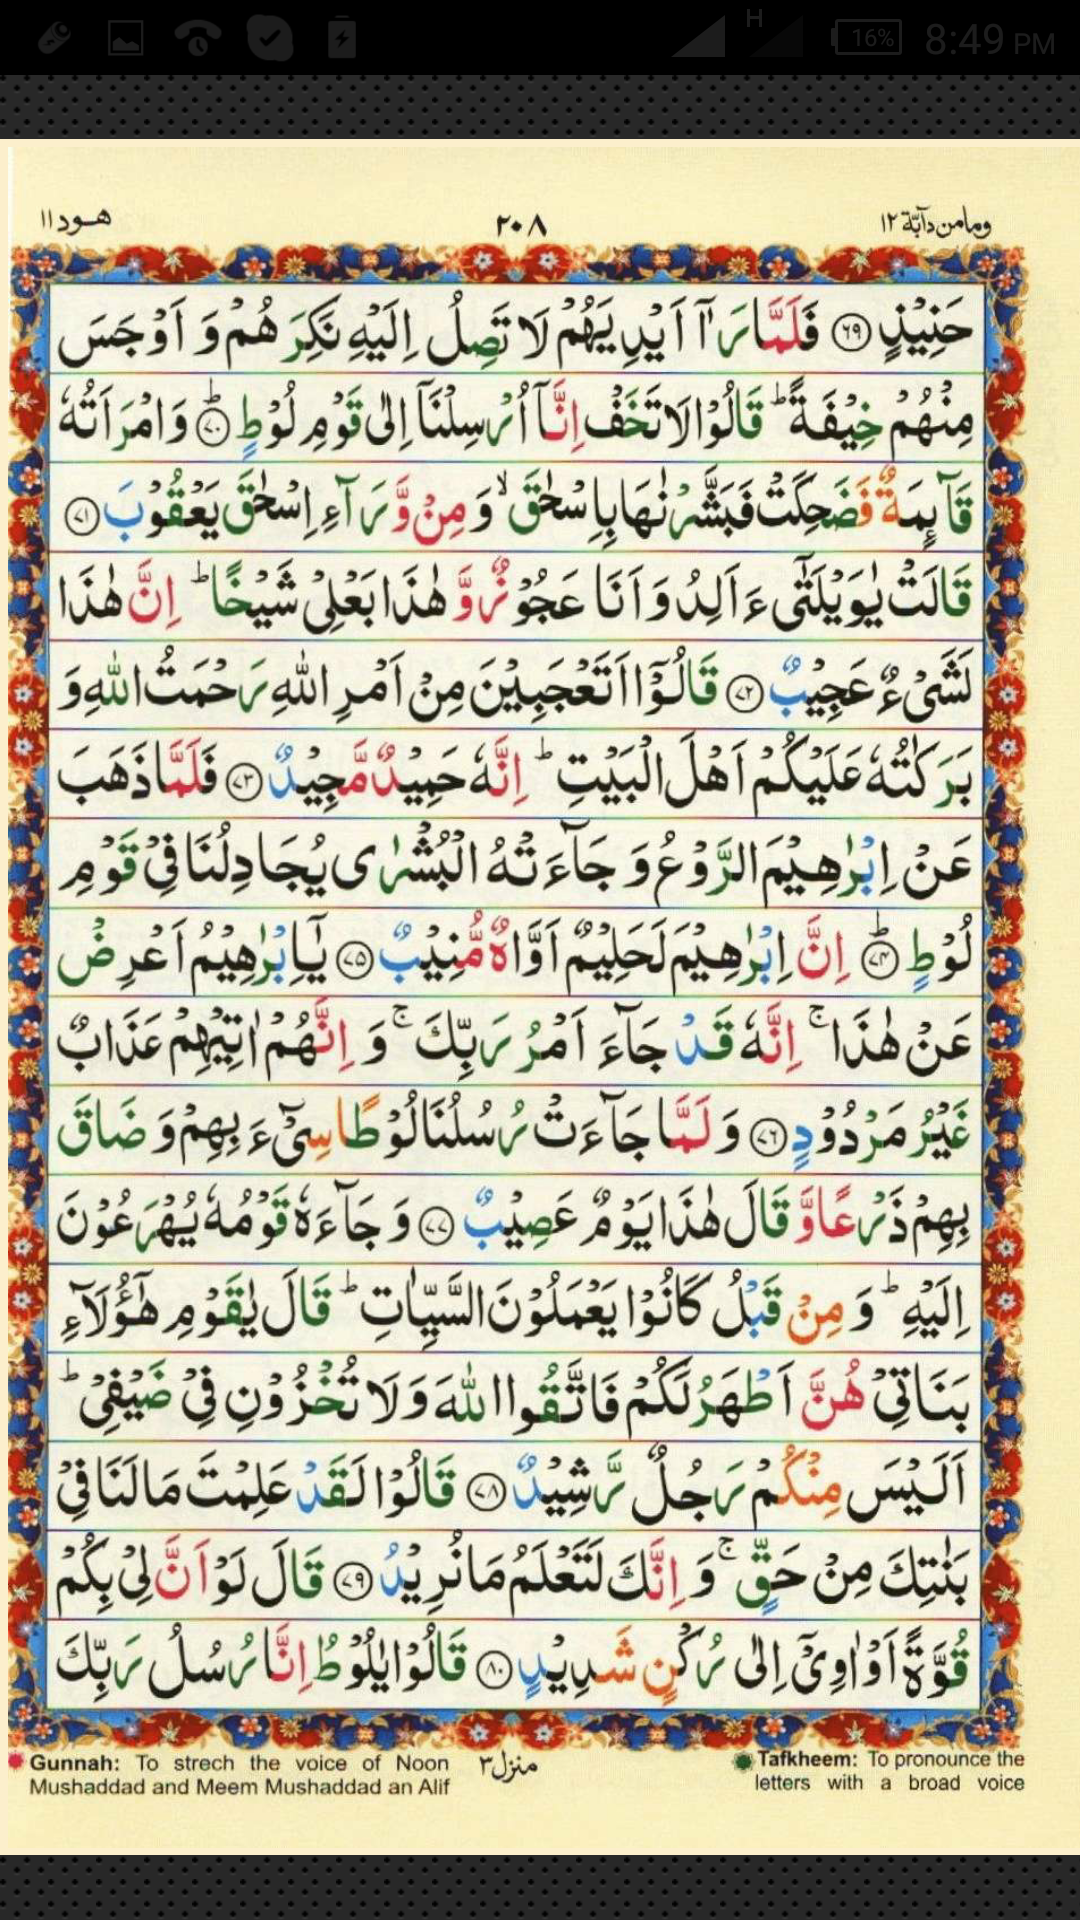 16% 8:49 PM
H
ومامن دآبّة ١٢
٢٠٨
هود ١١
حَنِيْذٍ ﴿٦٩﴾ فَلَمَّا رَاٰۤ اَيْدِيَهُمْ لَا تَصِلُ اِلَيْهِ نَكِرَهُمْ وَ اَوْجَسَ
مِنْهُمْ خِيْفَةً ؕ قَالُوْا لَا تَخَفْ اِنَّاۤ اُرْسِلْنَاۤ اِلٰى قَوْمِ لُوْطٍ ؕ﴿٧٠﴾ وَ امْرَاَتُهٗ
قَآىِٕمَةٌ فَضَحِكَتْ فَبَشَّرْنٰهَا بِاِسْحٰقَ ۙ وَ مِنْ وَّرَآءِ اِسْحٰقَ يَعْقُوْبَ ﴿٧١﴾
قَالَتْ يٰوَيْلَتٰٓى ءَاَلِدُ وَ اَنَا عَجُوْزٌ وَّ هٰذَا بَعْلِيْ شَيْخًا ؕ اِنَّ هٰذَا
لَشَيْءٌ عَجِيْبٌ ﴿٧٢﴾ قَالُوْۤا اَتَعْجَبِيْنَ مِنْ اَمْرِ اللّٰهِ رَحْمَتُ اللّٰهِ وَ
بَرَكٰتُهٗ عَلَيْكُمْ اَهْلَ الْبَيْتِ ؕ اِنَّهٗ حَمِيْدٌ مَّجِيْدٌ ﴿٧٣﴾ فَلَمَّا ذَهَبَ
عَنْ اِبْرٰهِيْمَ الرَّوْعُ وَ جَآءَتْهُ الْبُشْرٰى يُجَادِلُنَا فِيْ قَوْمِ
لُوْطٍ ؕ﴿٧٤﴾ اِنَّ اِبْرٰهِيْمَ لَحَلِيْمٌ اَوَّاهٌ مُّنِيْبٌ ﴿٧٥﴾ يٰۤاِبْرٰهِيْمُ اَعْرِضْ
عَنْ هٰذَا ۚ اِنَّهٗ قَدْ جَآءَ اَمْرُ رَبِّكَ ۚ وَ اِنَّهُمْ اٰتِيْهِمْ عَذَابٌ
غَيْرُ مَرْدُوْدٍ ﴿٧٦﴾ وَ لَمَّا جَآءَتْ رُسُلُنَا لُوْطًا سِيْٓءَ بِهِمْ وَ ضَاقَ
بِهِمْ ذَرْعًا وَّ قَالَ هٰذَا يَوْمٌ عَصِيْبٌ ﴿٧٧﴾ وَ جَآءَهٗ قَوْمُهٗ يُهْرَعُوْنَ
اِلَيْهِ ؕ وَ مِنْ قَبْلُ كَانُوْا يَعْمَلُوْنَ السَّيِّاٰتِ ؕ قَالَ يٰقَوْمِ هٰۤؤُلَآءِ
بَنَاتِيْ هُنَّ اَطْهَرُ لَكُمْ فَاتَّقُوا اللّٰهَ وَ لَا تُخْزُوْنِ فِيْ ضَيْفِيْ ؕ
اَلَيْسَ مِنْكُمْ رَجُلٌ رَّشِيْدٌ ﴿٧٨﴾ قَالُوْا لَقَدْ عَلِمْتَ مَا لَنَا فِيْ
بَنٰتِكَ مِنْ حَقٍّ ۚ وَ اِنَّكَ لَتَعْلَمُ مَا نُرِيْدُ ﴿٧٩﴾ قَالَ لَوْ اَنَّ لِيْ بِكُمْ
قُوَّةً اَوْ اٰوِيْۤ اِلٰى رُكْنٍ شَدِيْدٍ ﴿٨٠﴾ قَالُوْا يٰلُوْطُ اِنَّا رُسُلُ رَبِّكَ
Gunnah: To strech the voice of Noon
Mushaddad and Meem Mushaddad an Alif
منزل ٣
Tafkheem: To pronounce the
letters with a broad voice